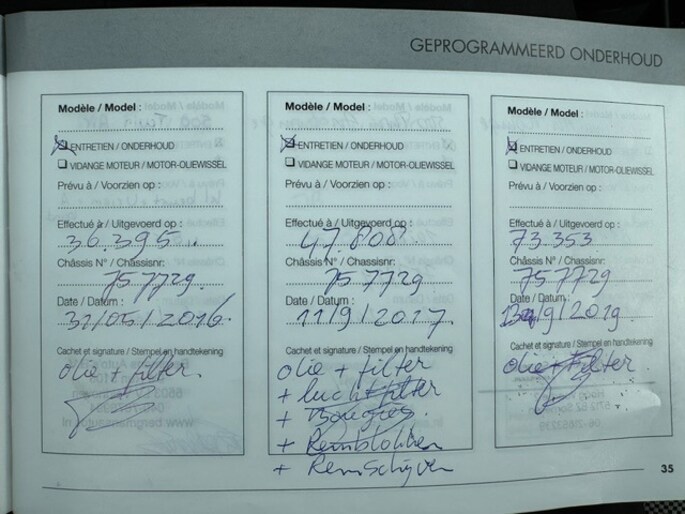 GEPROGRAMMEERD ONDERHOUD
Modèle / Model :
ENTRETIEN / ONDERHOUD
VIDANGE MOTEUR / MOTOR-OLIEWISSEL
Prévu à / Voorzien op :
Effectué à / Uitgevoerd op :
36.395
Châssis N° / Chassisnr:
757729.
Date / Datum :
31/05/2016
Cachet et signature / Stempel en handtekening
olie + filter.
Modèle / Model :
ENTRETIEN / ONDERHOUD
VIDANGE MOTEUR / MOTOR-OLIEWISSEL
Prévu à / Voorzien op :
Effectué à / Uitgevoerd op :
47.808.
Châssis N° / Chassisnr:
757729.
Date / Datum :
11/9/2017.
Cachet et signature / Stempel en handtekening
olie + filter
+ luchtfilter
+ Bougies.
+ Remblokken
+ Remschijven
Modèle / Model :
ENTRETIEN / ONDERHOUD
VIDANGE MOTEUR / MOTOR-OLIEWISSEL
Prévu à / Voorzien op :
Effectué à / Uitgevoerd op :
73.353
Châssis N° / Chassisnr:
757729
Date / Datum :
/9/2019.
Cachet et signature / Stempel en handtekening
olie + Filter
35